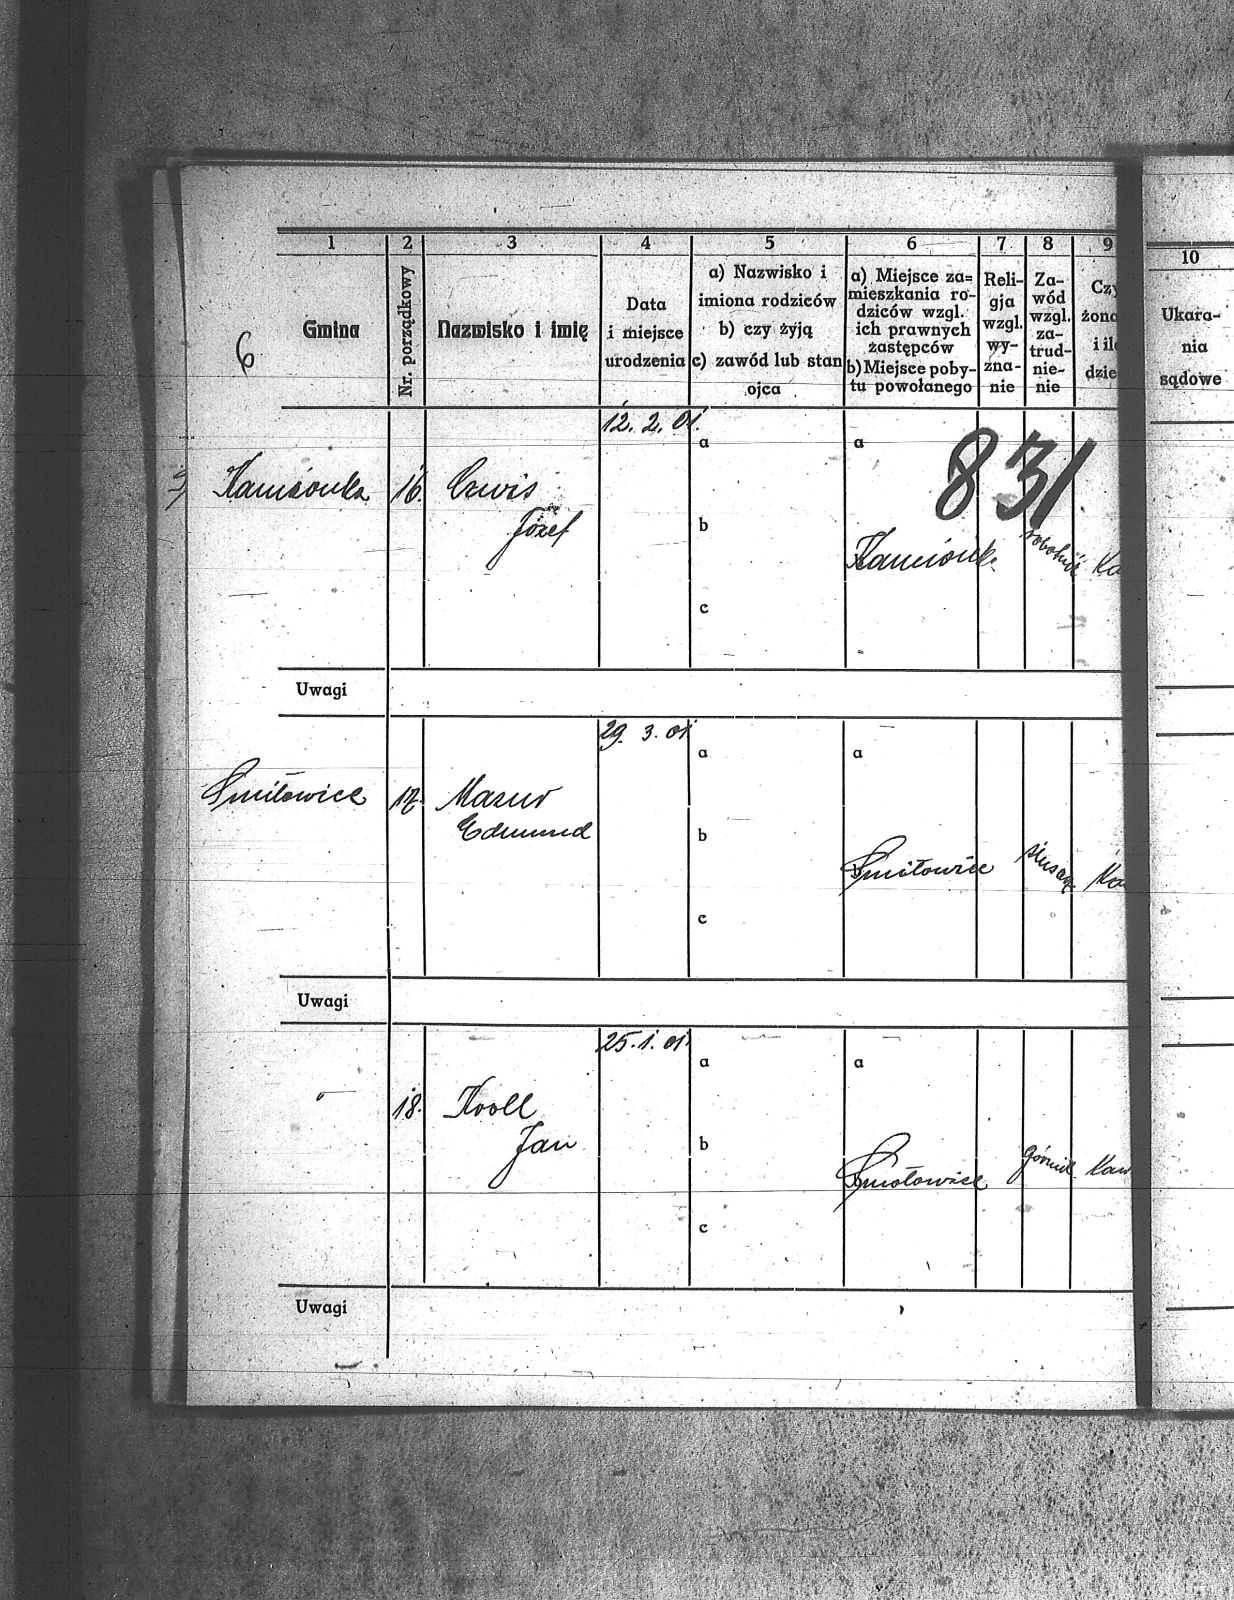 6
1 2 3 4 5 6 7 8 9 10
Gmina
Nr. porządkowy
Nazwisko i imię
Data
i miejsce
urodzenia
a) Nazwisko i
imiona rodziców
b) czy żyją
c) zawód lub stan
ojca
a) Miejsce za=
mieszkania ro-
dziców wzgl.
ich prawnych
zastępców
b) Miejsce poby-
tu powołanego
Reli-
gja
wzgl.
wy-
zna-
nie
Za-
wód
wzgl.
za-
trud-
nie-
nie
Czy
żona
i ile
dzie
Ukara-
nia
sądowe
831
12. 2. 01.
a a
Kamionka 16.
Józef
b
Kamionka robotnik Ka
c
Uwagi
29. 3. 01
a a
Smiłowice 17. Mazur
Edmund
b
Smiłowice ślusarz Ka
c
Uwagi
25. 1. 01.
a a
18. Kroll
Jan
b
Smiłowice górnik Kaw
c
Uwagi